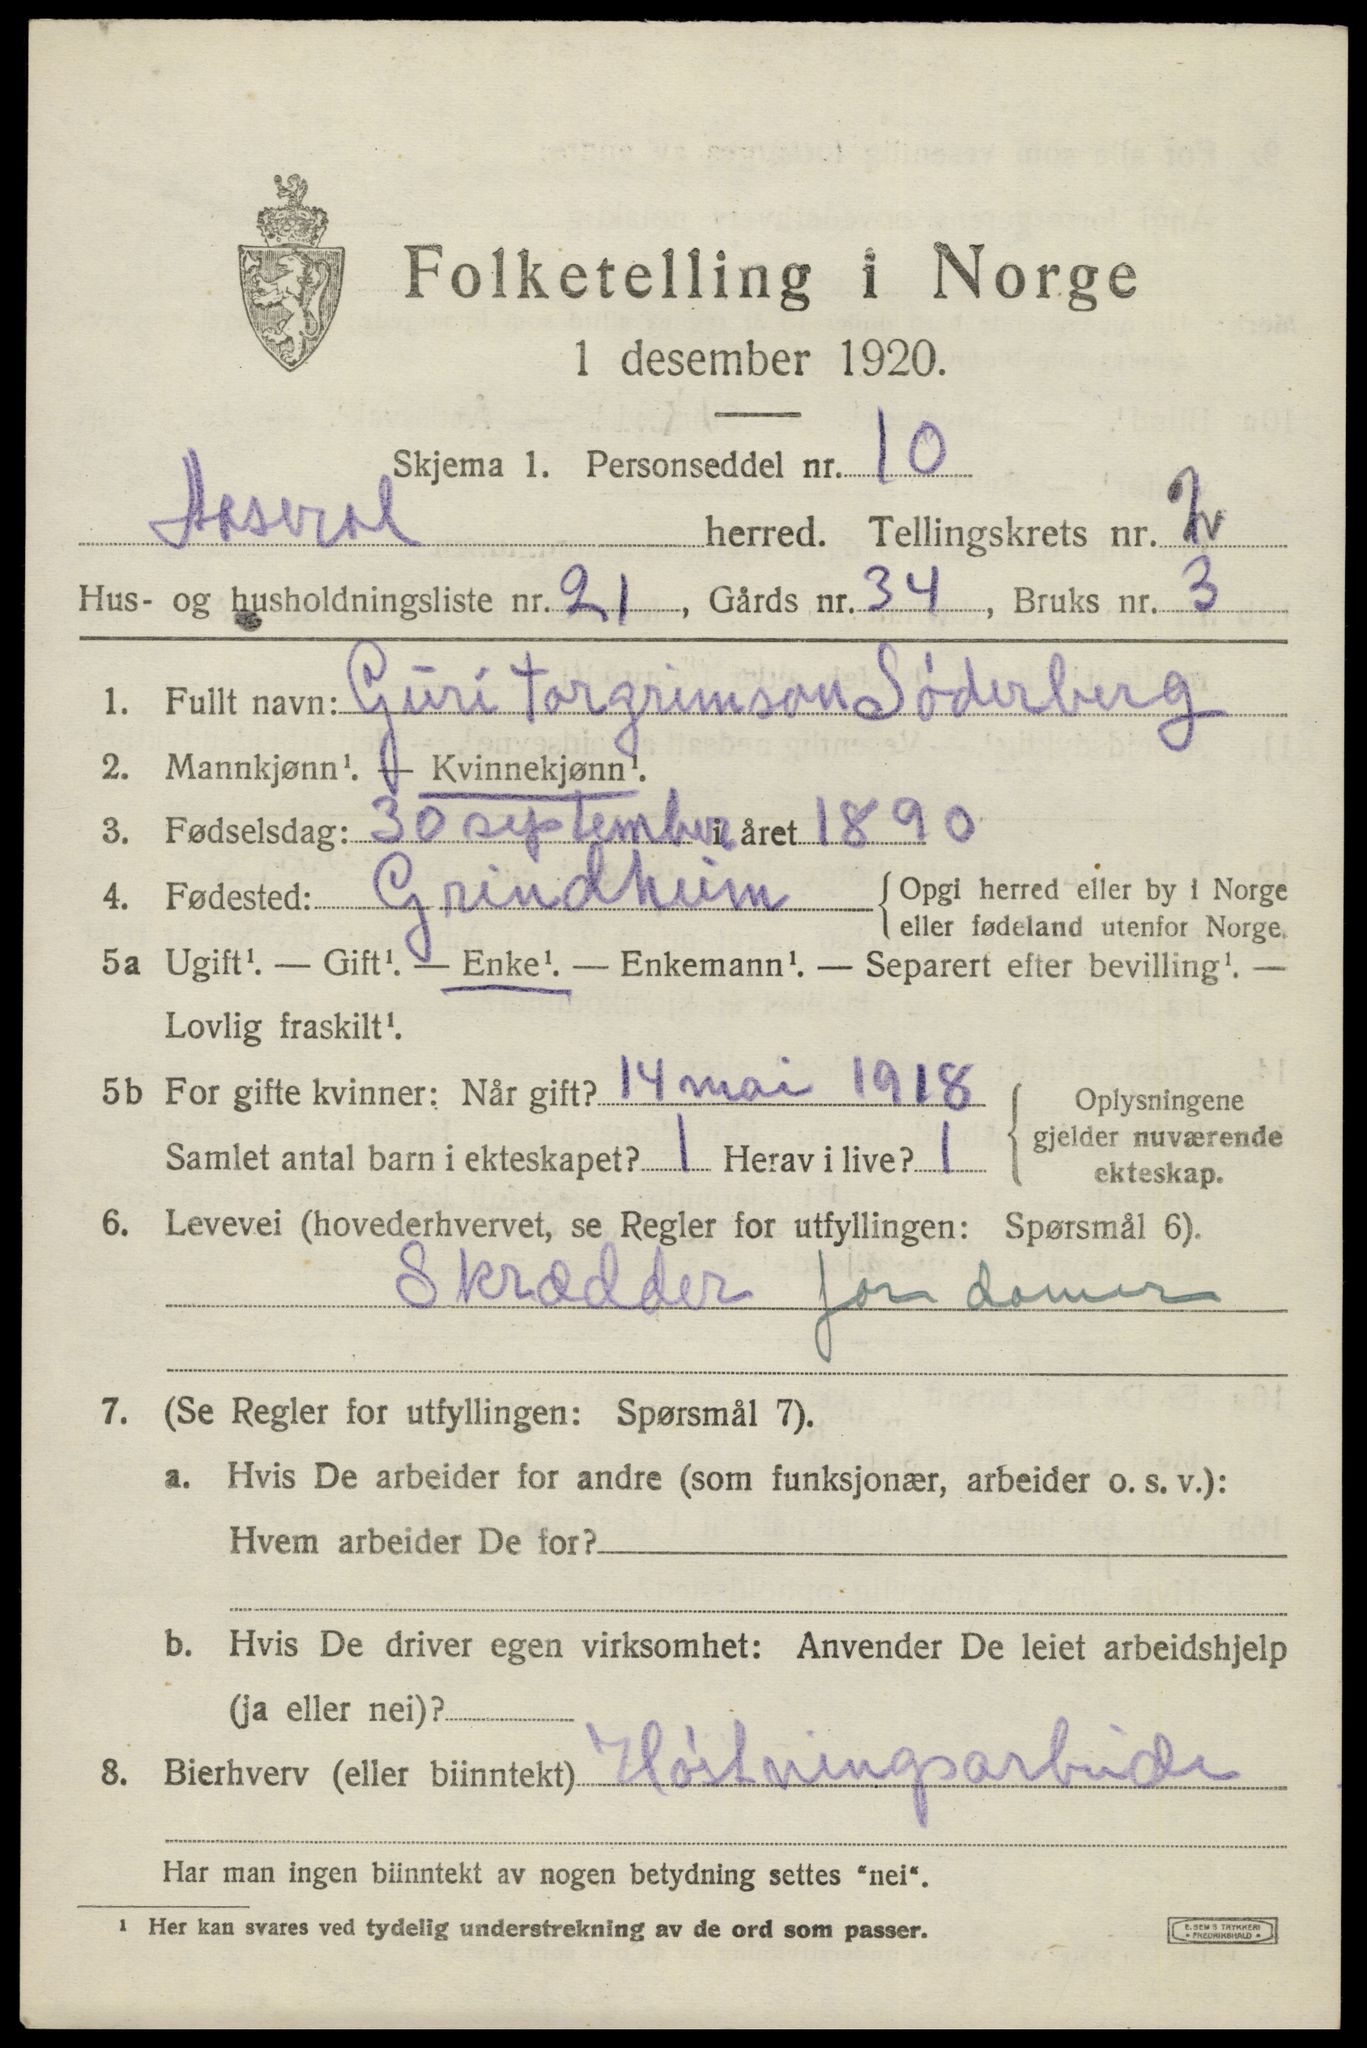 Folketelling i Norge
1 desember 1920.
Skjema 1. Personseddel nr. 10
Aaseral herred. Tellingskrets nr. 2
Hus- og husholdningsliste nr. 21, Gårds nr. 34, Bruks nr. 3
1. Fullt navn: Guri Torgrimson Söderberg
2. Mannkjønn¹. — Kvinnekjønn¹.
3. Fødselsdag: 30 september i året 1890
4. Fødested: Grindheim { Opgi herred eller by i Norge
eller fødeland utenfor Norge.
5a Ugift¹. — Gift¹. — Enke¹. — Enkemann¹. — Separert efter bevilling¹. —
Lovlig fraskilt¹.
5b For gifte kvinner: Når gift? 14 mai 1918
Samlet antal barn i ekteskapet? 1 Herav i live? 1
{ Oplysningene
gjelder nuværende
ekteskap.
6. Levevei (hovederhvervet, se Regler for utfyllingen: Spørsmål 6).
Skrædder for damer
7. (Se Regler for utfyllingen: Spørsmål 7).
a. Hvis De arbeider for andre (som funksjonær, arbeider o. s. v.):
Hvem arbeider De for?
b. Hvis De driver egen virksomhet: Anvender De leiet arbeidshjelp
(ja eller nei)?
8. Bierhverv (eller biinntekt) Høstningsarbeide
Har man ingen biinntekt av nogen betydning settes “nei“.
¹ Her kan svares ved tydelig understrekning av de ord som passer.
E. SEM'S TRYKKERI
• FREDRIKSHALD •